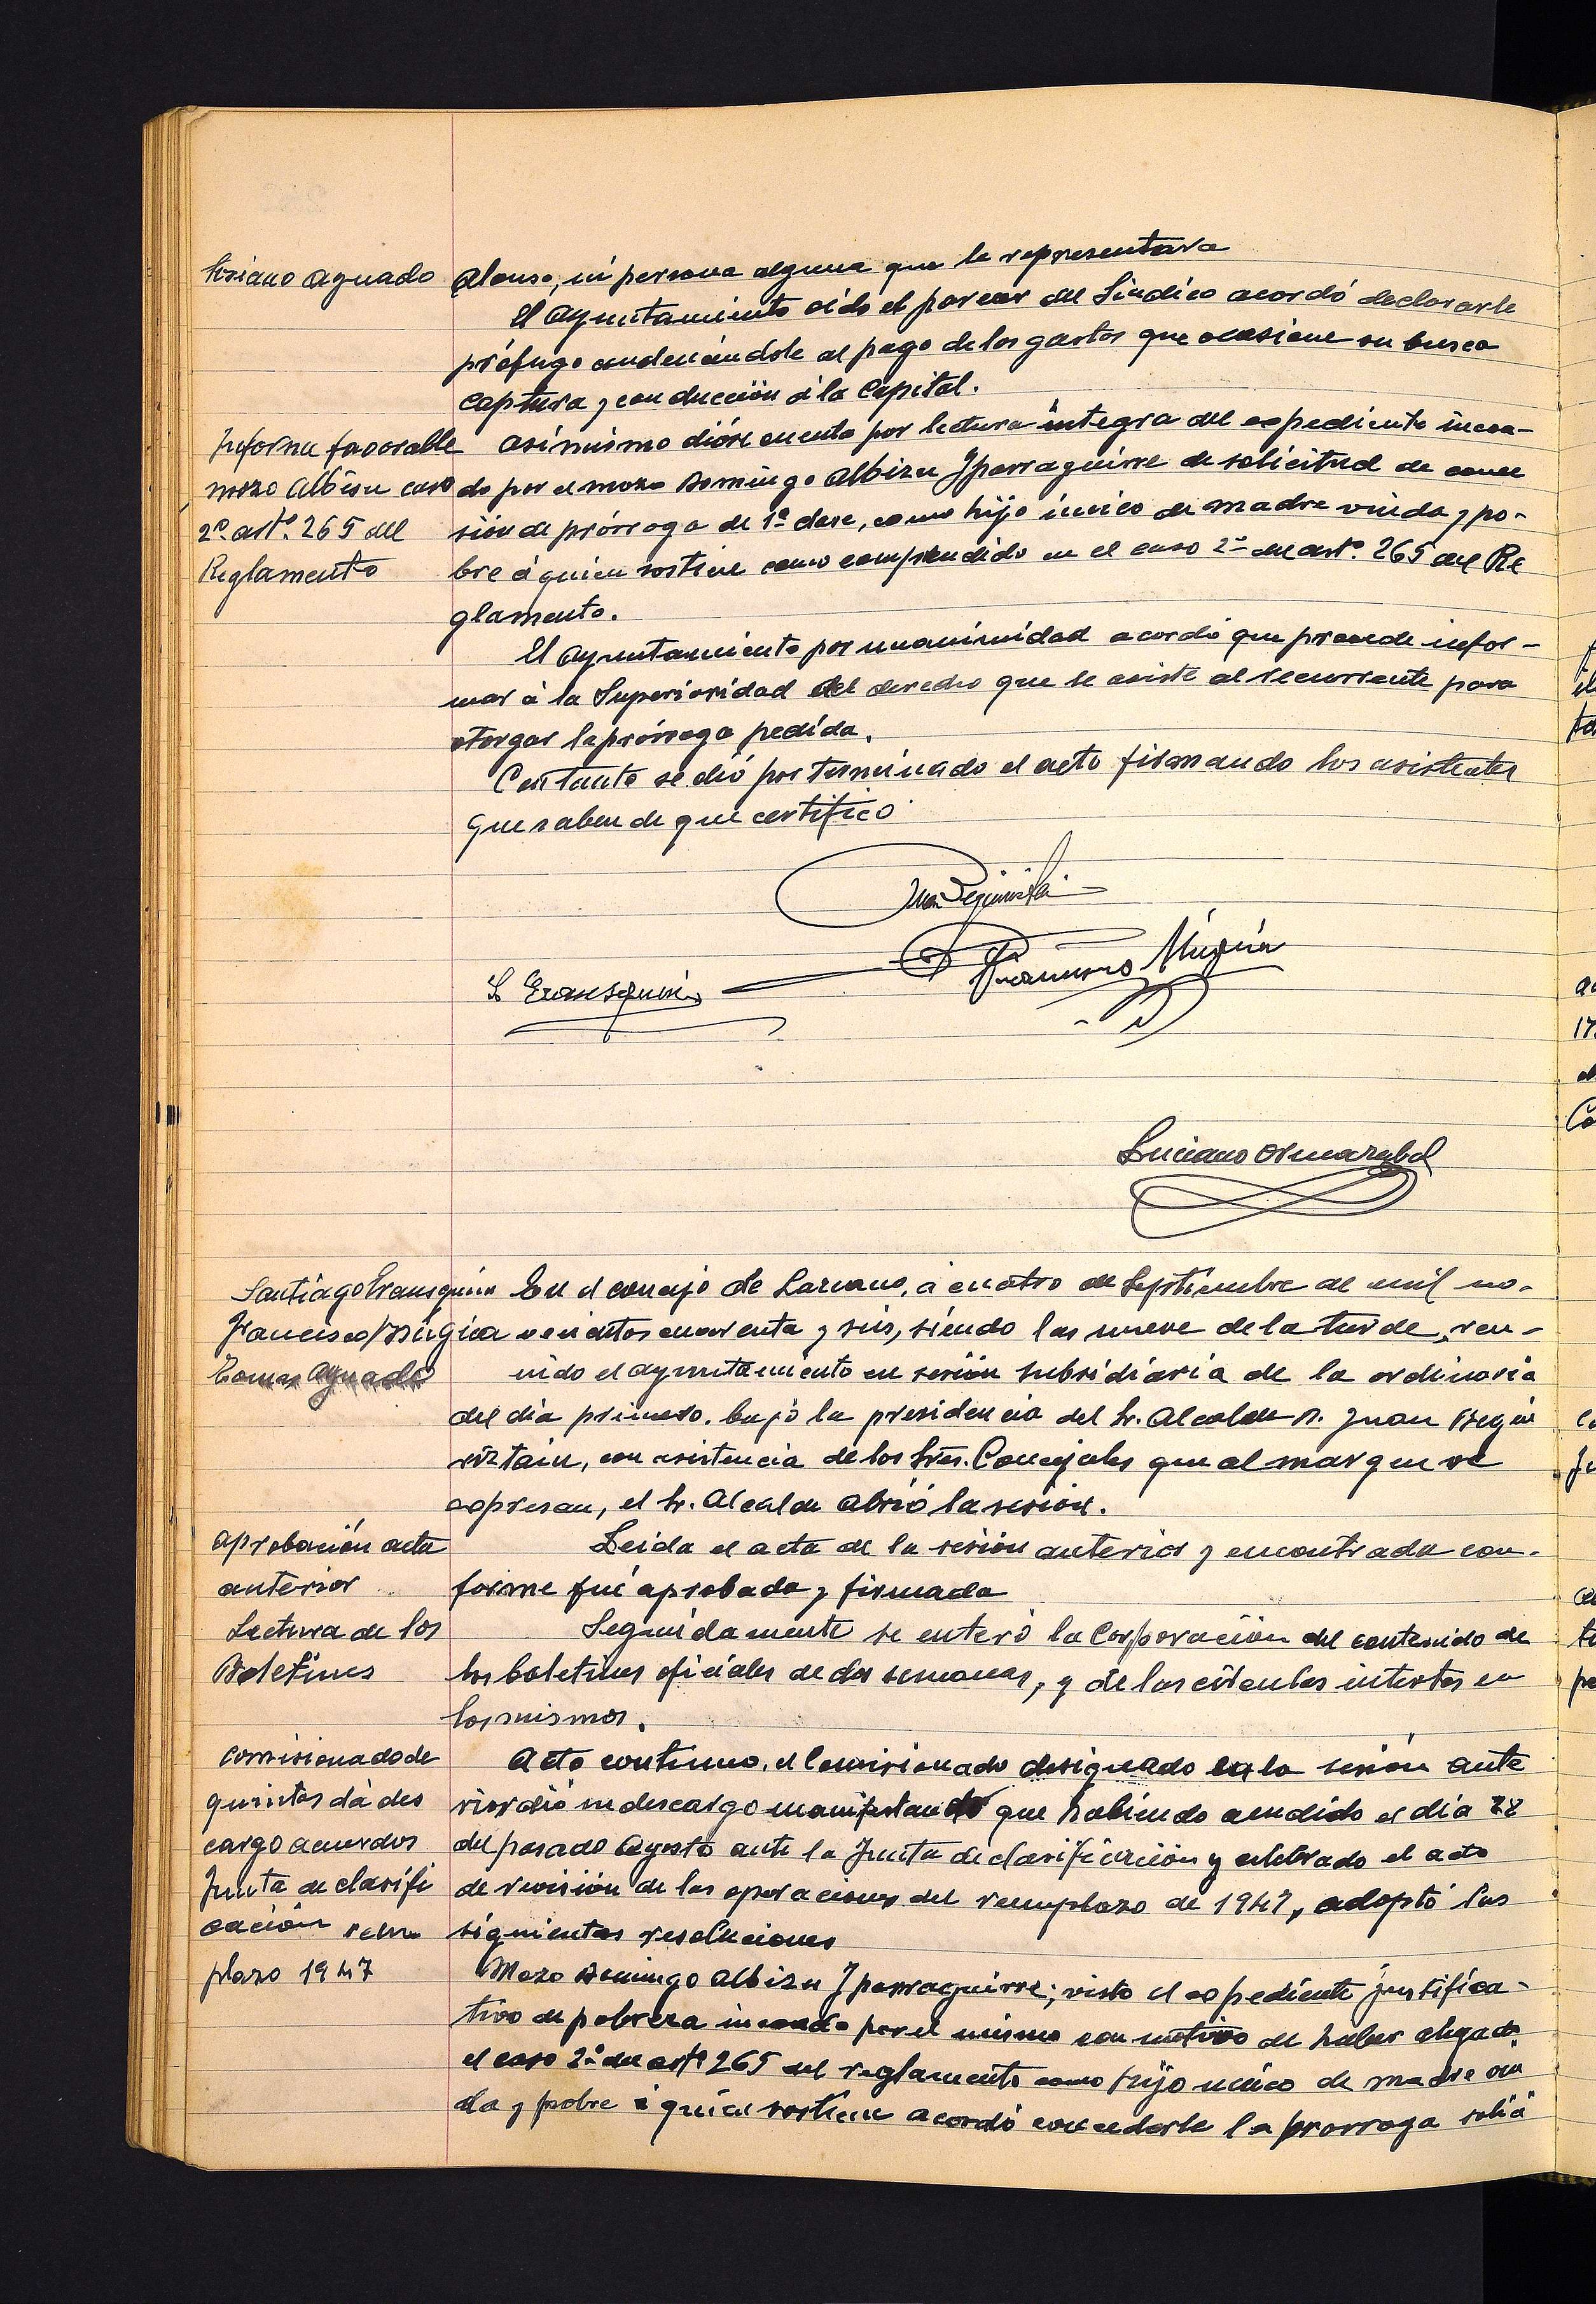 Soriano Aguado
Alonso, ni persona alguna que le representara
El Ayuntamiento oido el parecer del Sindico acordó declararle
prófugo condenándole al pago de los gastos que ocasione su busca
captura y conducción á la Capital.
Informe favorable
mozo Albisu caso
2º artº. 265 del
Reglamento
Asimismo dióse cuenta por lectura integra del expediente incoa-
do por el mozo Domingo Albizu Yparraguirre de solicitud de conce
sión de prórroga de 1ª clase, como hijo único de madre viuda y po-
bre á quien sostiene como comprendido en el caso 2º del artº. 265 del Re
glamento.
El Ayuntamiento por unanimidad acordó que procede infor-
mar á la Superioridad del derecho que le asiste al recurrente para
otorgar la prórroga pedida.
Con tanto se dió por terminado el acto firmando los asistentes
que saben de que certifico
Juan Beguiristain
S. Erausquin
Francisco Múgica
Luciano Ormazabal
Santiago Erausquin
Francisco Múgica
Tomas Aguado
En el concejo de Lazcano, á cuatro de Septiembre de mil no-
vecientos cuarenta y seis, siendo las nueve de la tarde, reu-
nido el Ayuntamiento en sesión subsidiaria de la ordinaria
del dia primero, bajo la presidencia del Sr. Alcalde D. Juan Begui
riztain, con asistencia de los Sres. Concejales que al margen se
expresan, el Sr. Alcalde abrió la sesión.
aprobación acta
anterior
Leida el acta de la sesión anterior y encontrada con-
forme fué aprobada y firmada
Lectura de los
Boletines
Seguidamente se enteró la Corporación del contenido de
los boletines oficiales de dos semanas, y de las circulares insertas en
los mismos.
Comisionado de
quintas dá des
cargo acuerdos
Junta de clasifi
cación reem
plazo 1947
Acto continuo, el Comisionado designado en la sesión ante
rior dió su descargo manifestando que habiendo acudido el día 28
del pasado Agosto ante la Junta de clasificación y celebrado el acto
de revisión de las operaciones del reemplazo de 1947, adoptó las
siguientes resoluciones
Mozo Domingo Albizu Yparraguirre; visto el expediente justifica-
tivo de pobreza incoado por el mismo con motivo de haber alegado
el caso 2º del artº 265 del reglamento como hijo único de madre viu
da y pobre á quien sostiene acordó concederle la prorroga solici